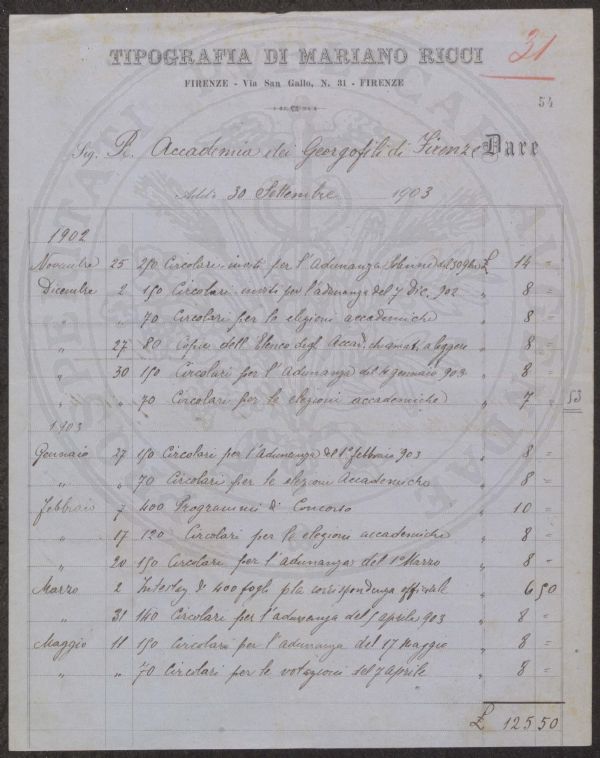 TIPOGRAFIA DI MARIANO RICCI
31
FIRENZE - Via San Gallo, N. 31 - FIRENZE
54
Sig. R. Accademia dei Georgofili di Firenze Dare
Addì 30 Settembre 1903
1902
Novembre 25 250 Circolari inviti per l'Adunanza Solenne del 30 9bre £ 14 =
Dicembre 2 150 Circolari inviti per l'adunanza del 7 Dic. 902 " 8 =
" " 70 Circolari per le elezioni accademiche " 8 =
" 27 80 Copie dell'Elenco degli Accad. chiamati a leggere " 8 =
" 30 150 Circolari per l'Adunanza del 4 gennaio 903 " 8 =
" " 70 Circolari per le elezioni accademiche " 7 = 53
1903
Gennaio 27 150 Circolari per l'Adunanza del 1° febbraio 903 " 8 =
" " 70 Circolari per le elezioni Accademiche " 8 =
Febbraio 7 400 Programmi di Concorso " 10 =
" 17 120 Circolari per le elezioni accademiche " 8 =
" 20 150 Circolari per l'adunanza del 1° Marzo " 8 =
Marzo 2 400 fogli p la corrispondenza officiale " 6 50
" 31 140 Circolari per l'adunanza del 5 aprile 903 " 8 =
Maggio 11 150 Circolari per l'adunanza del 17 Maggio " 8 =
" " 70 Circolari per le votazioni del 7 aprile " 8 =
£ 125 50